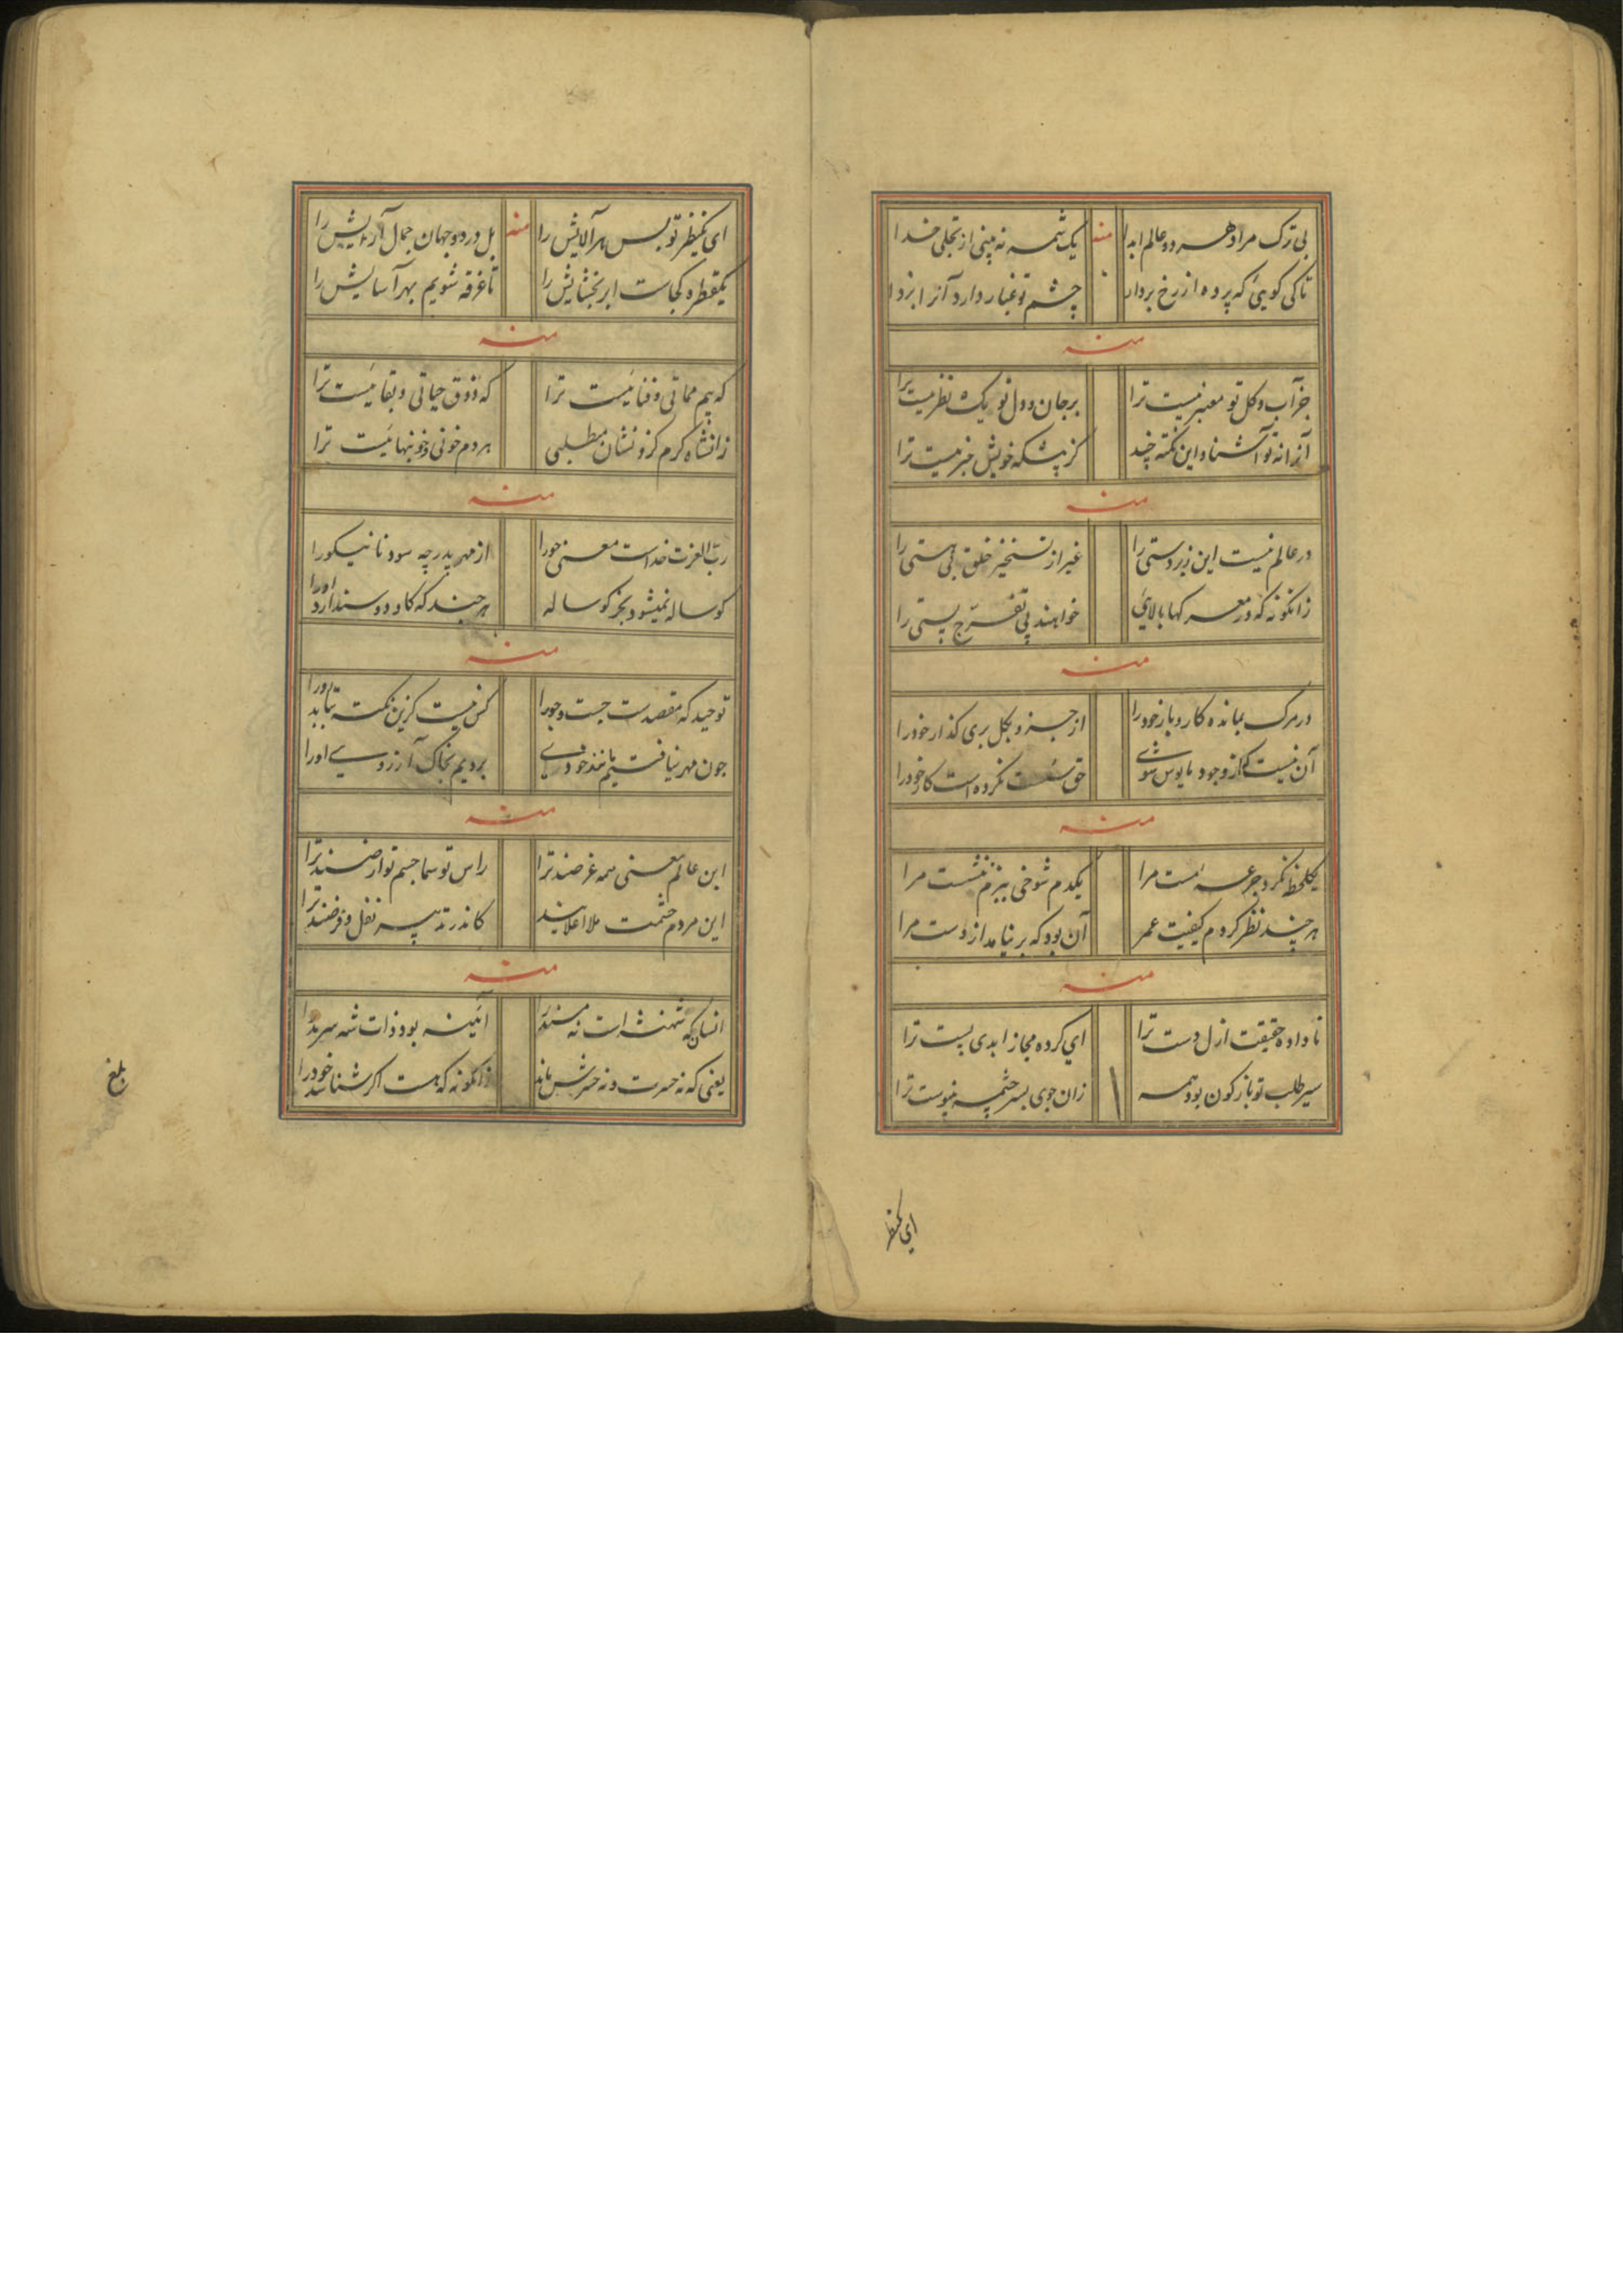 بی ترک مراد هر دو عالم ابدا منه یک شمه نه بینی از تجلی خدا
تا کی گویی که پرده از رخ بردار چشم تو غبار دارد آنرا بزدا
منه
جز آب و گل تو معتبر نیست ترا بر جان و دل تو یک نظر نیست ترا
آنرا نه تو آشنا و این نکته چند کز پیشکه خویش خبر نیست ترا
منه
در عالم نیست این زبردستی را غیر از تسخیر خلق بی هستی را
زانگونه که در معرکها بالایی خواهند پی تفرج پستی را
منه
در مرگ بمانده کار و بار خود را از جزو بکل بری گذار خود را
آن نیست کز وجود مایوس شوی حق سست نکرده است کار خود را
منه
یکلحظه نکرد جرعه مست مرا یکدم شوخی ببزم ننشست مرا
هر چند نظر کردم کیفیت عمر آن بود که بر نیامد از دست مرا
منه
تا داده حقیقت ازل دست ترا ای کرده مجاز ابدی پست ترا
سیر طلب تو باز گون بود همه زان جوی بسرچشمه نپیوست ترا
ای یکنظر
ای یکنظر تو بس هر آلایش را منه بل در دو جهان جمال آرایش را
یکقطره کجاست ابر بخشایش را تا غرقه شویم بهر آسایش را
منه
که بیم مماتی و فنا نیست ترا که ذوق حیاتی و بقا نیست ترا
زانشاه کرم کزو نشان میطلبی هر دم خونی و خونبها نیست ترا
منه
رب العزت خداست معنی جو را از مهر پدر چه سود نا نیکو را
کوساله نمیشود بجز کوساله هر چند که کاو دوست دارد او را
منه
توحید که مقصدست جست و جو را کس نیست کزین نکته بتابد رو را
چون مهر نیافتیم مانند خودی بردیم بخاک آرزوی او را
منه
این عالم معنی همه غرضند ترا راس تو سما جسم تو ارضند ترا
این مردم چشمت ملا اعلایند کاندر ته پسر نفل و فرضند ترا
منه
انسان که شهنشه است نه مسند را آئینه بود ذات شه سرمد را
یعنی که نه حسرت و نه حسرتش ماند زانگونه که هست اگر شناسد خود را
بلغ